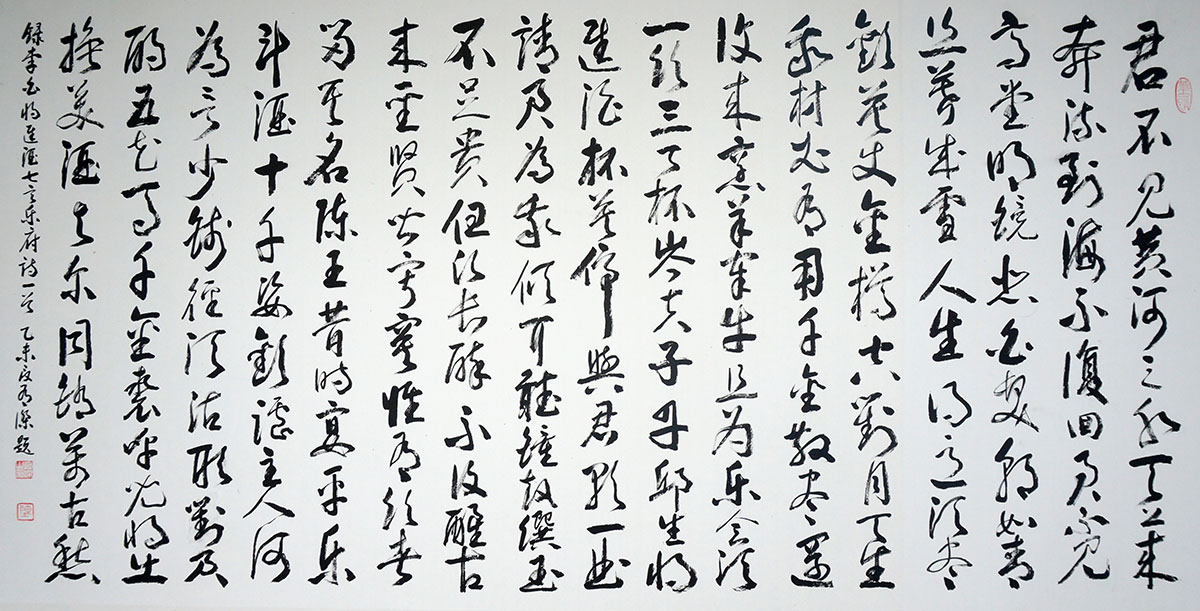 君不见黄河之水天上来
奔流到海不復回君不见
高堂明镜悲白髮朝如青
丝暮成雪人生得意须尽
欢莫使金樽空對月天生
我材必有用千金散尽還
復来烹羊宰牛且为乐会须
一饮三百杯岑夫子丹邱生将
進酒杯莫停與君歌一曲
請君為我倾耳聽鐘鼓饌玉
不足贵但愿长醉不復醒古
来圣贤皆寂寞惟有饮者
留其名陈王昔時宴平乐
斗酒十千恣歡謔主人何
為言少钱径须沽取對君
酌五花马千金裘呼儿将出
换美酒与尔同销萬古愁
録李白将進酒七言乐府詩一首 乙未夏有深题